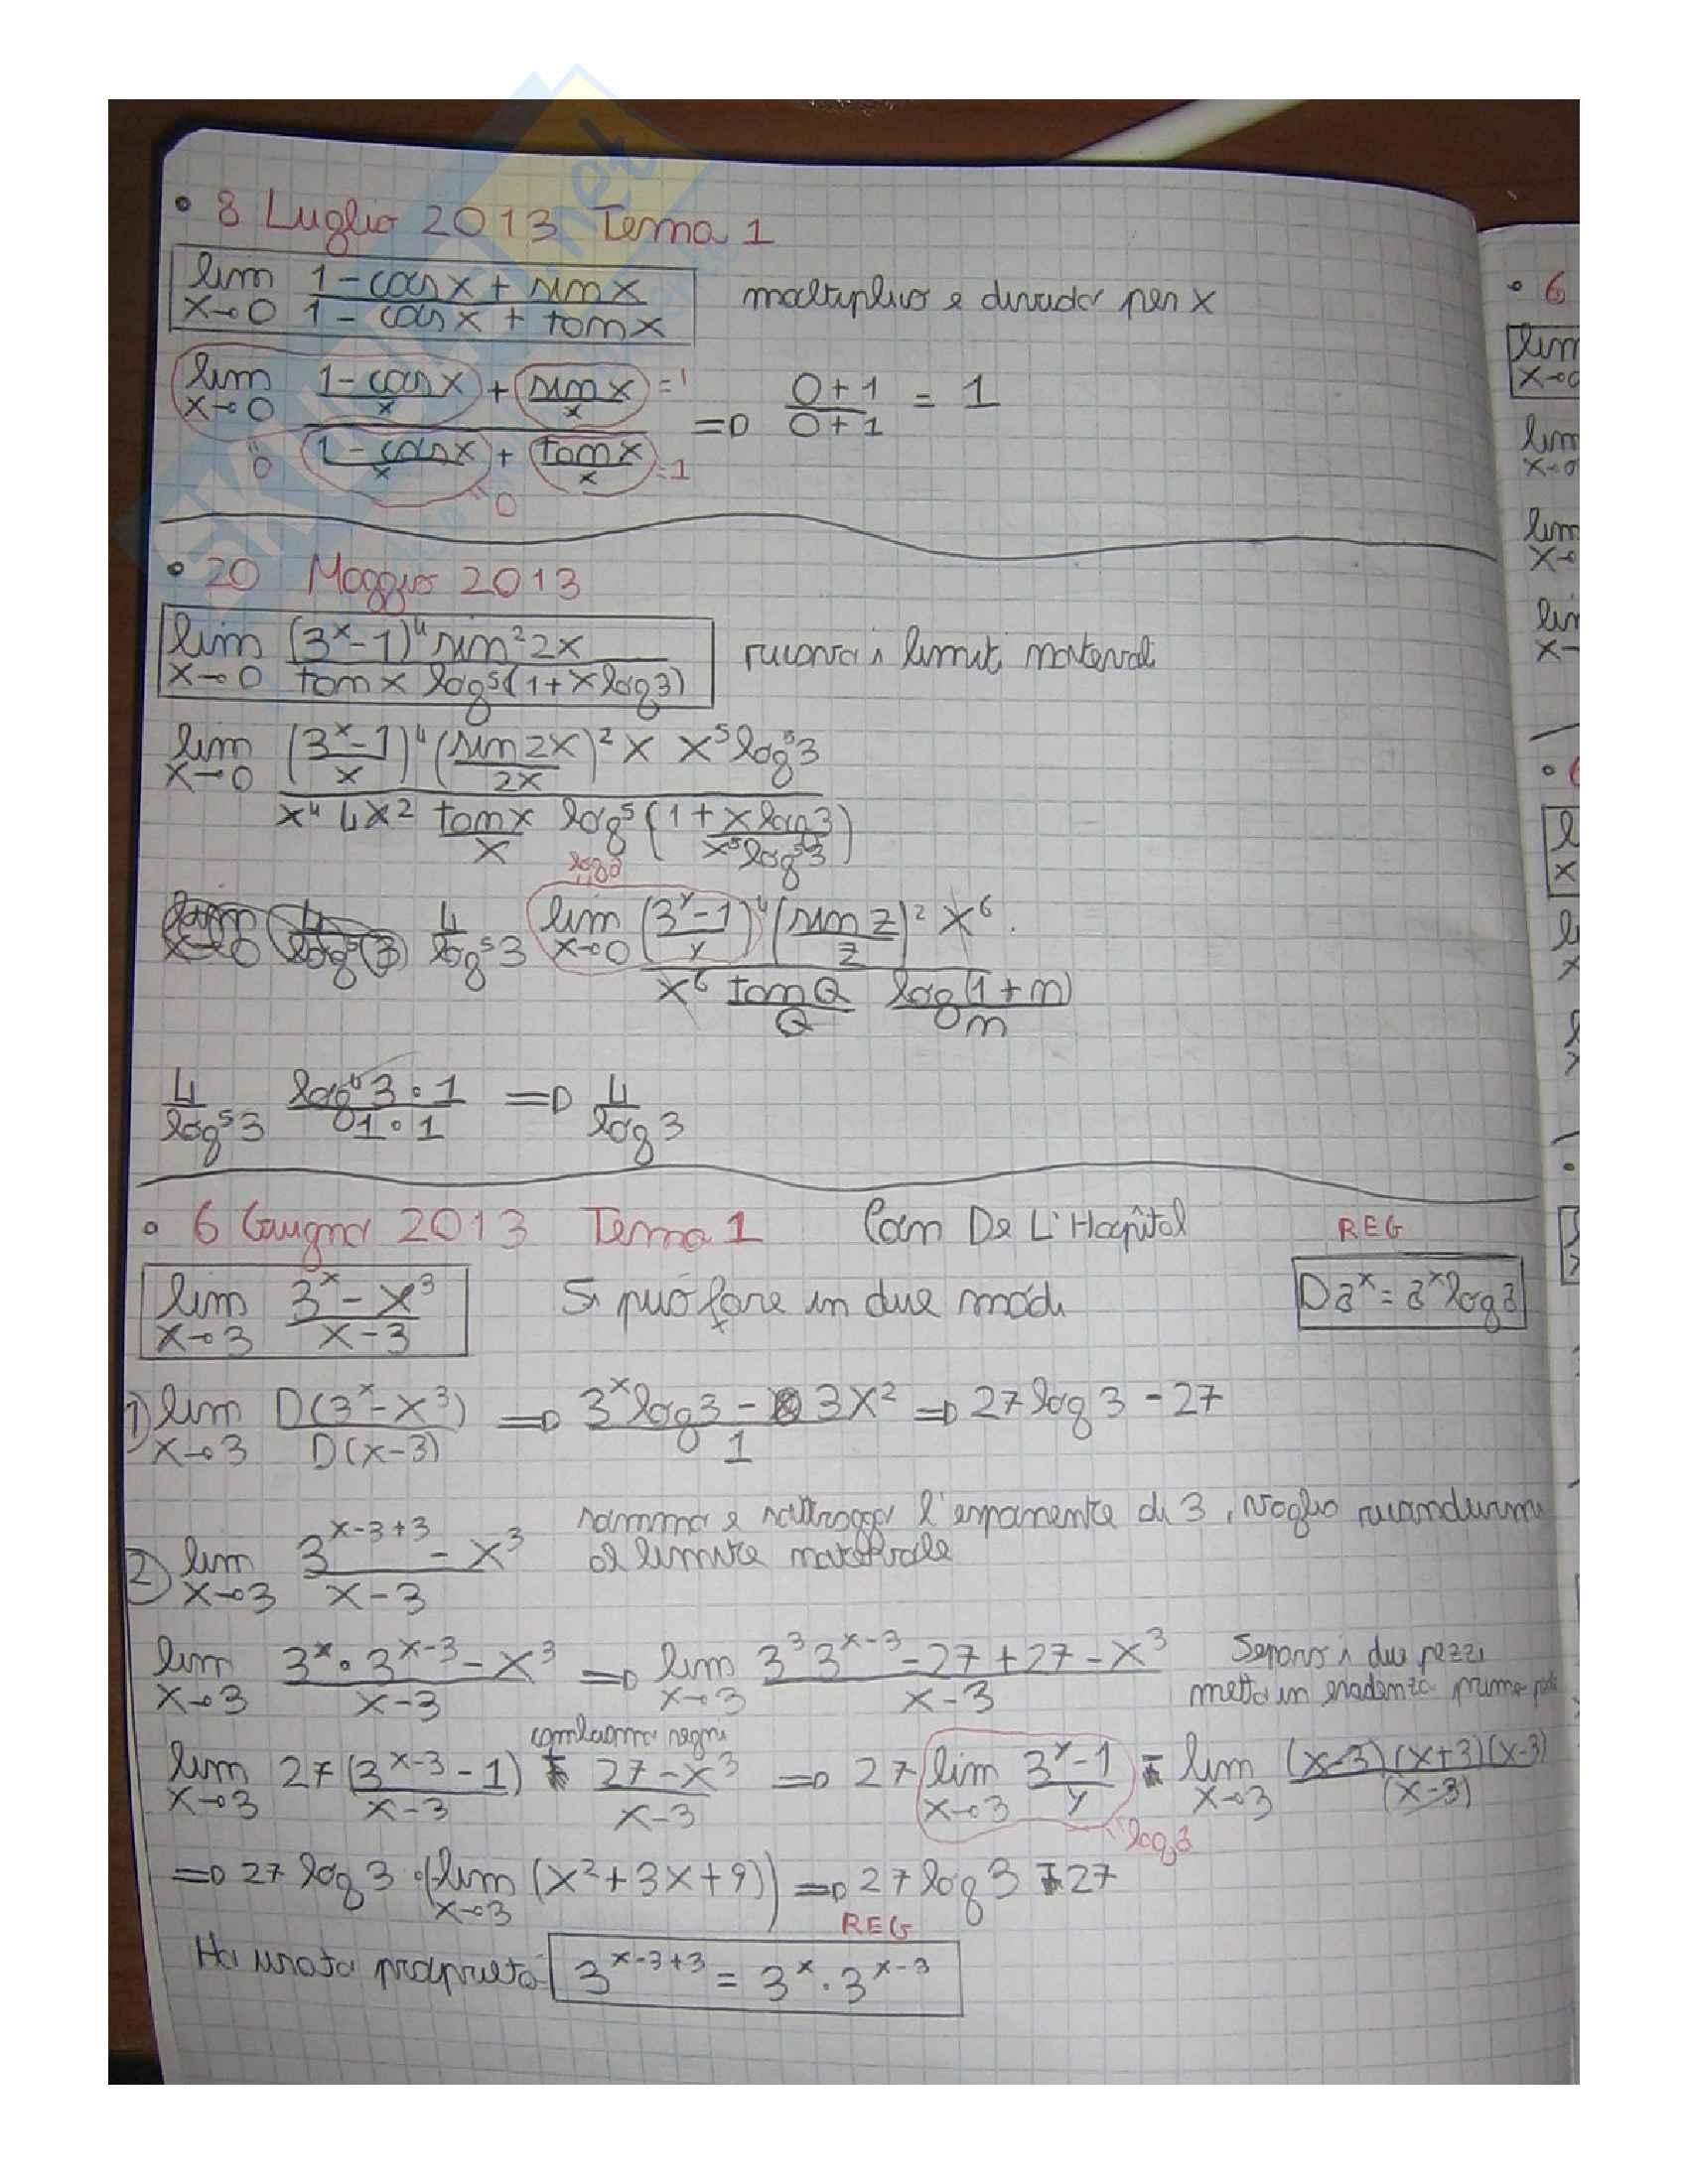 • 8 Luglio 2013 Tema 1
lim x→0 (1 - cos x + sin x)/(1 - cos x + tan x) moltiplico e divido per x
lim x→0 ((1 - cos x)/x + (sin x)/x)/((1 - cos x)/x + (tan x)/x) ⇒ (0+1)/(0+1) = 1
= 1
0
= 1
= 0
• 20 Maggio 2013
lim x→0 ((3^x - 1)^4 sin^2 2x)/(tan x log^5(1 + x log 3)) ricorda i limiti
lim x→0 ((3^x - 1)/x)^4 ((sin 2x)/2x)^2 x x^5 log^5 3
x^4 4x^2 (tan x)/x log^5 (1 + x log 3)/(x^5 log^5 3)
log 3
4/log^5 3 lim x→0 ((3^y - 1)/y)^4 ((sin z)/z)^2 x^6
x^6 (tan Q)/Q (log(1+n))/n
4/log^5 3 (log^4 3 · 1)/(1 · 1) ⇒ 4/log 3
• 6 Giugno 2013 Tema 1 Con De L'Hopîtal REG
lim x→3 (3^x - x^3)/(x - 3) Si può fare in due modi D3^x = 3^x log 3
1) lim x→3 D(3^x - x^3)/D(x-3) ⇒ (3^x log 3 - 3x^2)/1 ⇒ 27 log 3 - 27
2) lim x→3 (3^(x-3+3) - x^3)/(x - 3) sommo e sottraggo l'esponente di 3, voglio ricondurmi
al limite
lim x→3 (3^x · 3^(x-3) - x^3)/(x-3) ⇒ lim x→3 (3^3 3^(x-3) - 27 + 27 - x^3)/(x-3) Separo i due pezzi
metto in evidenza prima
cambiamo segni
lim x→3 27 (3^(x-3) - 1)/(x-3) - (27 - x^3)/(x-3) ⇒ 27 lim x→3 (3^y - 1)/y - lim x→3 ((x-3)(x+3)(x-3))/(x-3)
log 3
⇒ 27 log 3 · (lim x→3 (x^2 + 3x + 9)) ⇒ 27 log 3 - 27
REG
Ho usato proprietà 3^(x-3+3) = 3^x · 3^(x-3)
• 6
lim
x→0
lim
x→0
lim
x→
lim
x→